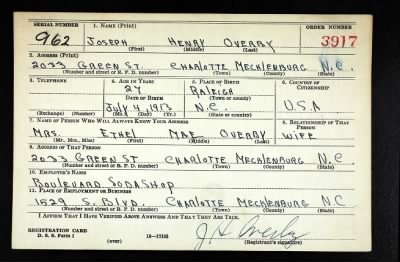 SERIAL NUMBER 1. NAME (Print) ORDER NUMBER
962 JOSEPH HENRY OVERBY 3917
(First) (Middle) (Last)
2. ADDRESS (Print)
2033 GREEN ST. CHARLOTTE MECKLENBURG N.C.
(Number and street or R. F. D. number) (Town) (County) (State)
3. TELEPHONE 4. AGE IN YEARS 5. PLACE OF BIRTH 6. COUNTRY OF CITIZENSHIP
27 RALEIGH
DATE OF BIRTH (Town or county)
JULY 4, 1913 N.C. U.S.A
(Exchange) (Number) (Mo.) (Day) (Yr.) (State or country)
7. NAME OF PERSON WHO WILL ALWAYS KNOW YOUR ADDRESS 8. RELATIONSHIP OF THAT PERSON
MRS. ETHEL MAE OVERBY WIFE
(Mr., Mrs., Miss) (First) (Middle) (Last)
9. ADDRESS OF THAT PERSON
2033 GREEN ST CHARLOTTE MECKLENBURG N.C.
(Number and street or R. F. D. number) (Town) (County) (State)
10. EMPLOYER'S NAME
BOULEVARD SODA SHOP
11. PLACE OF EMPLOYMENT OR BUSINESS
1529 S. BLVD. CHARLOTTE MECKLENBURG N.C
(Number and street or R. F. D. number) (Town) (County) (State)
I AFFIRM THAT I HAVE VERIFIED ABOVE ANSWERS AND THAT THEY ARE TRUE.
REGISTRATION CARD
D. S. S. Form 1 (over) 16—17105 J H Overby
(Registrant's signature)